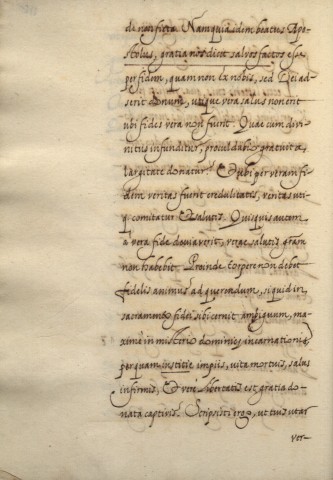 di non fieta. Nam quia idem beatus Apo-
stolus, gratia nos dicit salvos factos esse
per fidem, quam non ex nobis, sed Dei ad-
serit donum, utique vera salus non erit
ubi fides vera non fuerit. Quae cum divi-
nitus infunditur, procul dubio gratuita
largitate donatur. Et ubi per veram fi-
dem veritas fuerit credulitatis, veritas uti-
q. comitatur et salutis. Quisquis autem
a vera fide deviaverit, verae salutis gratiam
non habebit. Proinde torpere non debet
fidelis animus ad querendum, si quid in
sacramento fidei sibi cernit ambiguum, ma-
xime in misterio dominicę incarnationis,
per quam institię impiis, vita mortuis, salus
infirmis, et verę libertatis est gratia do-
nata captivis. Scripsisti ergo, ut tuis utar
ver-